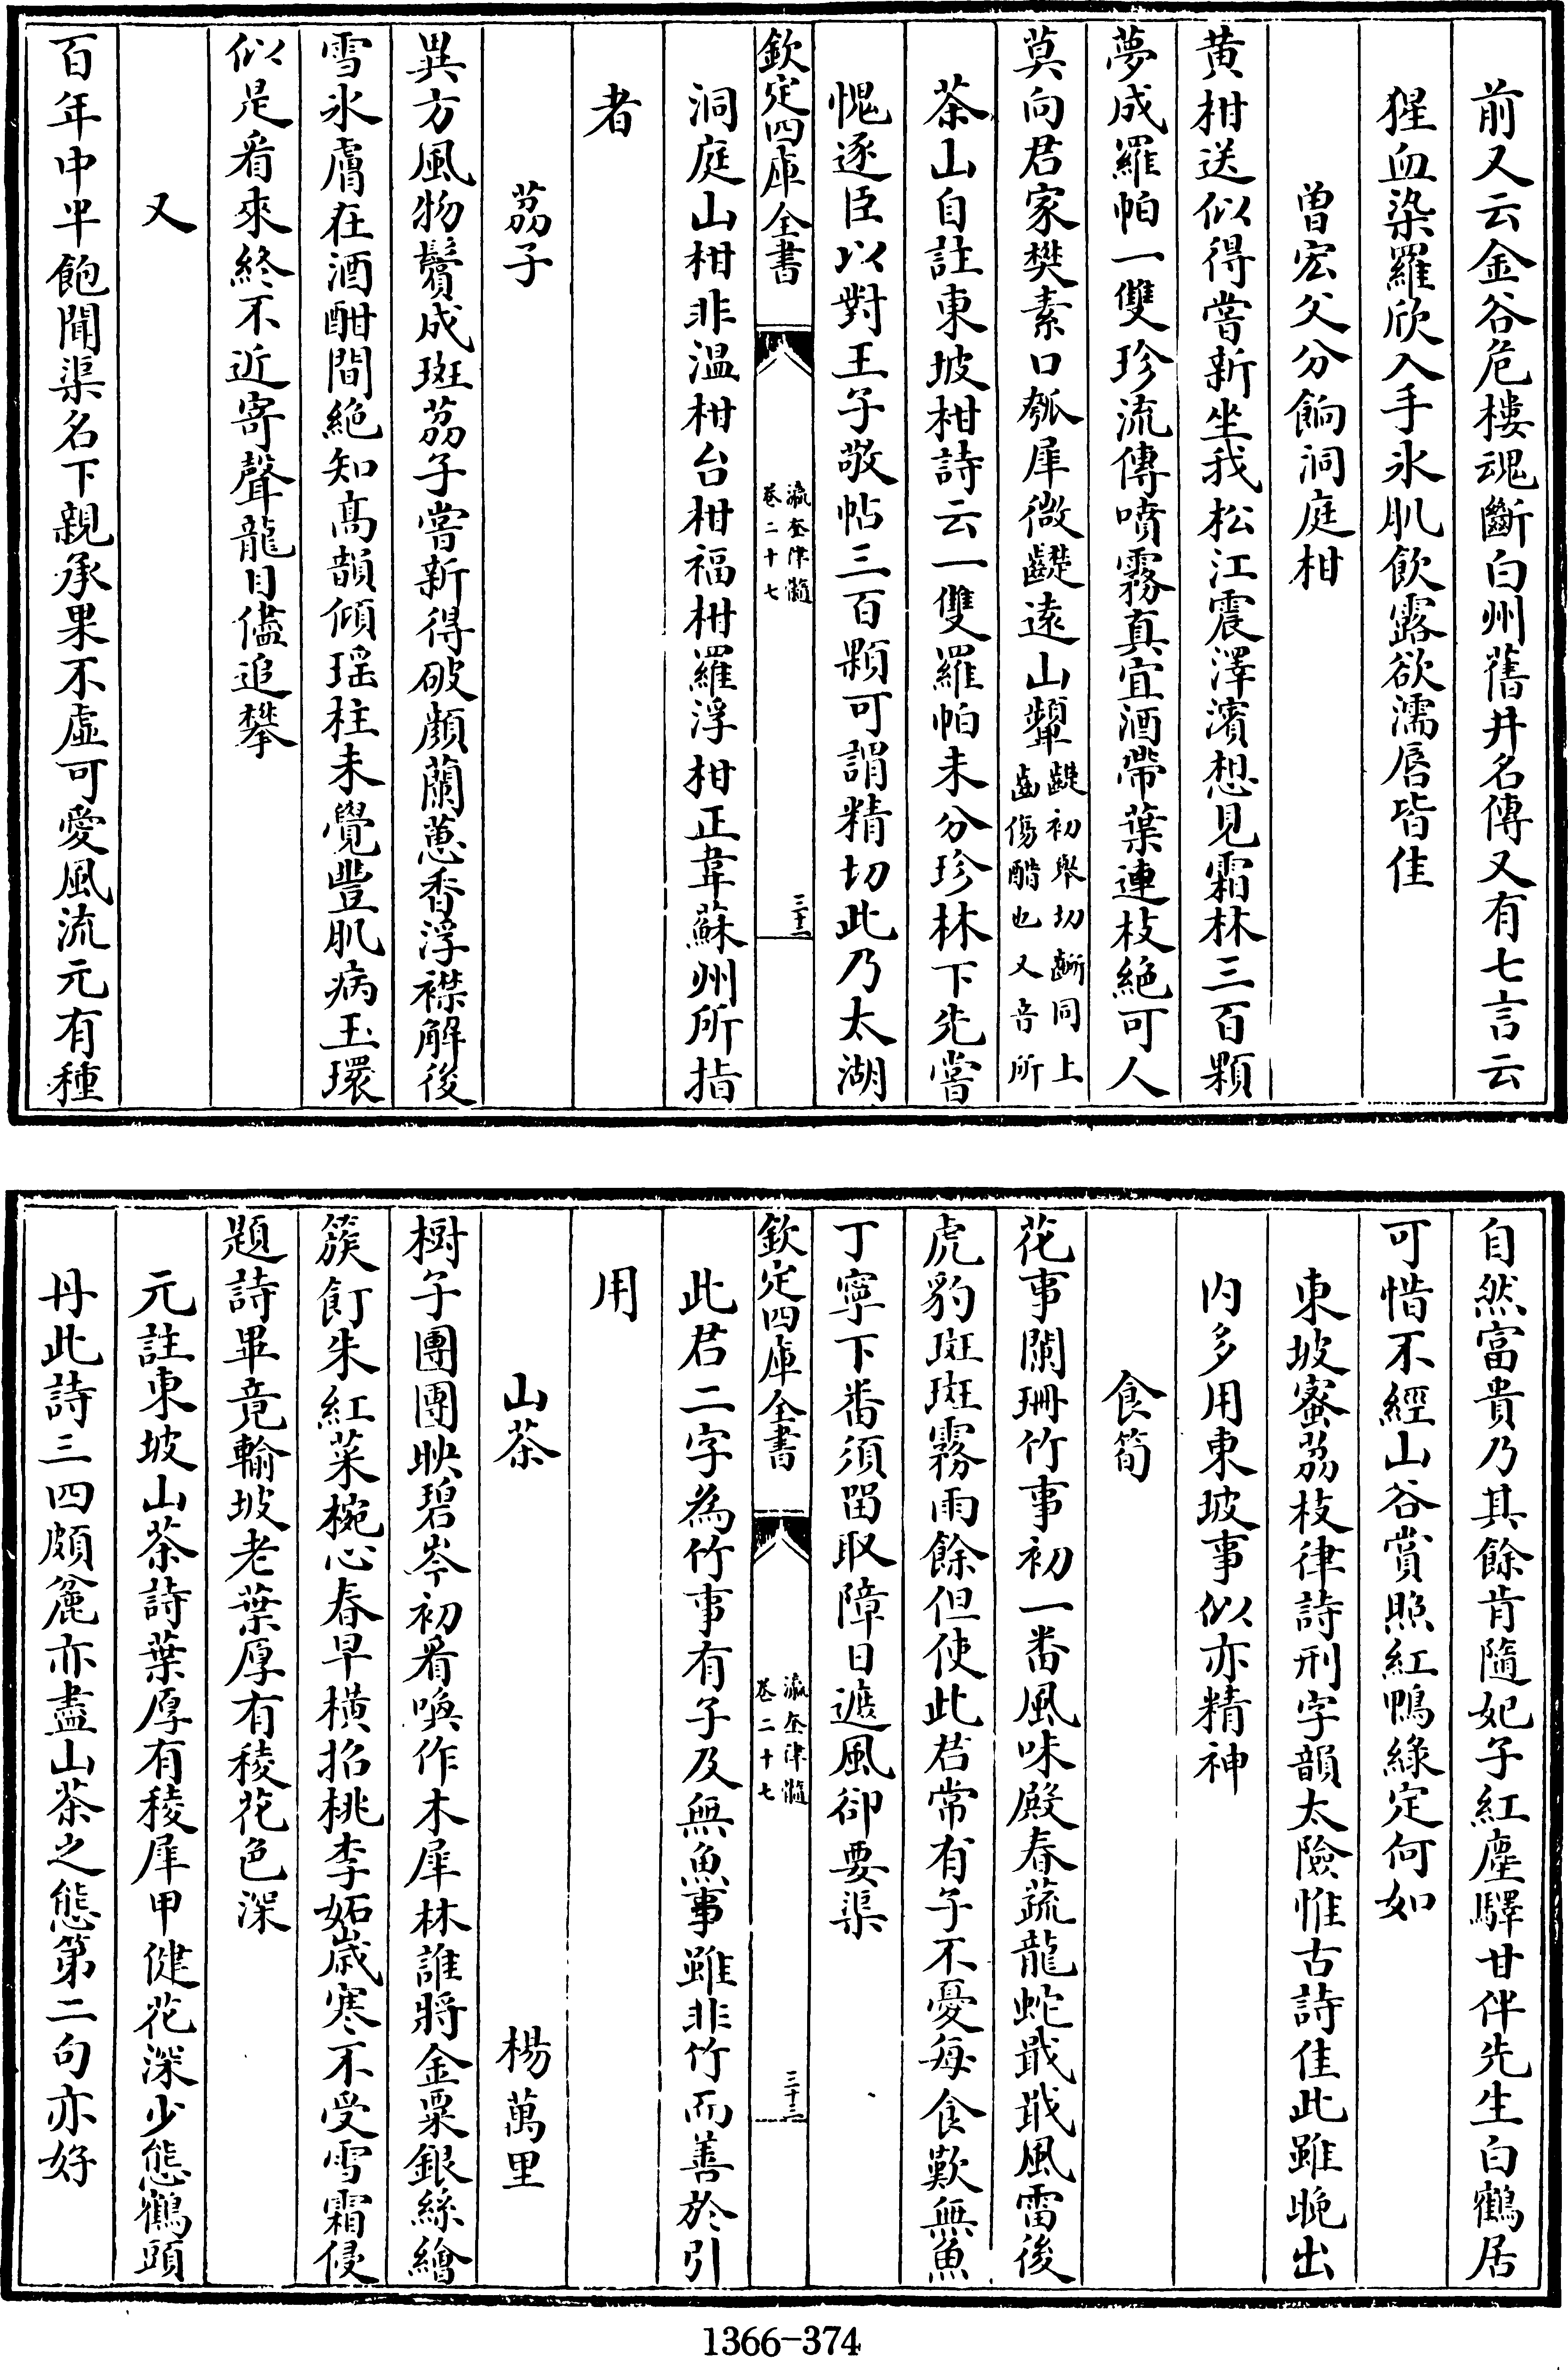 前又云金谷危樓魂斷白州舊井名傳又有七言云
猩血染羅欣入手氷肌飲露欲濡唇皆佳
曽宏父分餉洞庭柑
黄柑送似得嘗新坐我松江震澤濱想見霜林三百顆
夢成羅帕一雙珍流傳噴霧真宜酒帶葉連枝絶可人
莫向君家樊素口瓠犀微齼逺山顰齼初舉切齭同上齒傷酷也又音所
茶山自註東坡柑詩云一雙羅帕未分珍林下先嘗
愧逐臣以對王子敬帖三百顆可謂精切此乃太湖
欽定四庫全書
瀛奎律髓
卷二十七
三十二
洞庭山柑非温柑台柑福柑羅浮柑正韋蘇州所指
者
荔子
異方風物鬢成斑荔子嘗新得破顔蘭蕙香浮襟解後
雪氷膚在酒酣間絶知髙韻傾瑶柱未覺豐肌病玉環
似是看來終不近寄聲龍目儘追攀
又
百年中半飽聞渠名下親承果不虛可愛風流元有種
自然富貴乃其餘肯隨妃子紅塵驛甘伴先生白鶴居
可惜不經山谷賞照紅鴨綠定何如
東坡蜜荔枝律詩刑字韻太險惟古詩佳此雖晩出
内多用東坡事似亦精神
食筍
花事闌珊竹事初一番風味殿春蔬龍蛇戢戢風雷後
虎豹斑斑霧雨餘但使此君常有子不憂每食歎無魚
丁寧下番須留取障日遮風卻要渠
欽定四庫全書
瀛奎律髓
卷二十七
三十三
此君二字為竹事有子及無魚事雖非竹而善於引
用
山茶
楊萬里
樹子團團映碧岑初看喚作木犀林誰將金粟銀絲鱠
簇飣朱紅菜椀心春早横招桃李妬歲寒不受雪霜侵
題詩畢竟輸坡老葉厚有稜花色深
元註東坡山茶詩葉厚有稜犀甲健花深少態鶴頭
丹此詩三四頗麄亦盡山茶之態第二句亦好
1366-374